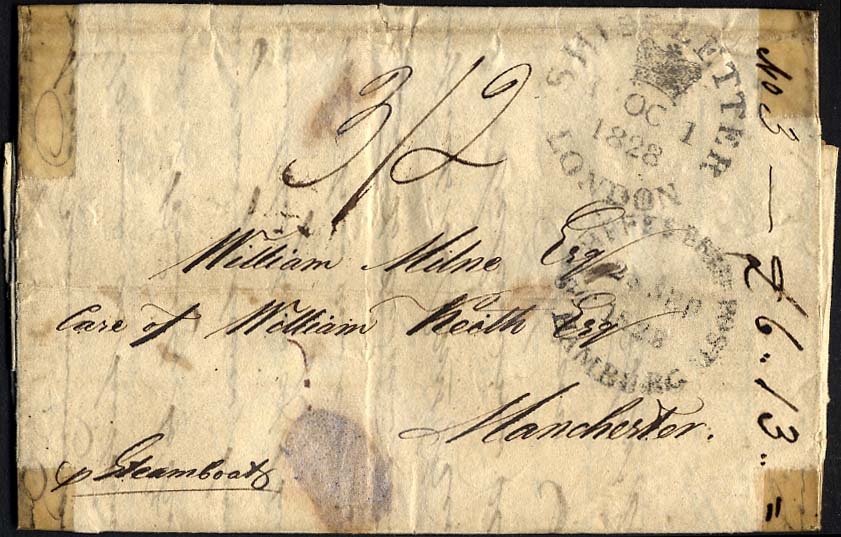 3/2
SHIP LETTER
OC 1
1828
LONDON
SCHIFFS BRIEF POST
SEP
1828
HAMBURG
William Milne Esq
Care of William Keith Esq
Manchester.
p Steamboat
No 3 — £6.13..